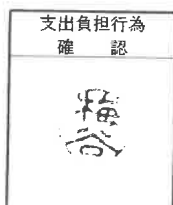 支出負担行為
確認
梅谷